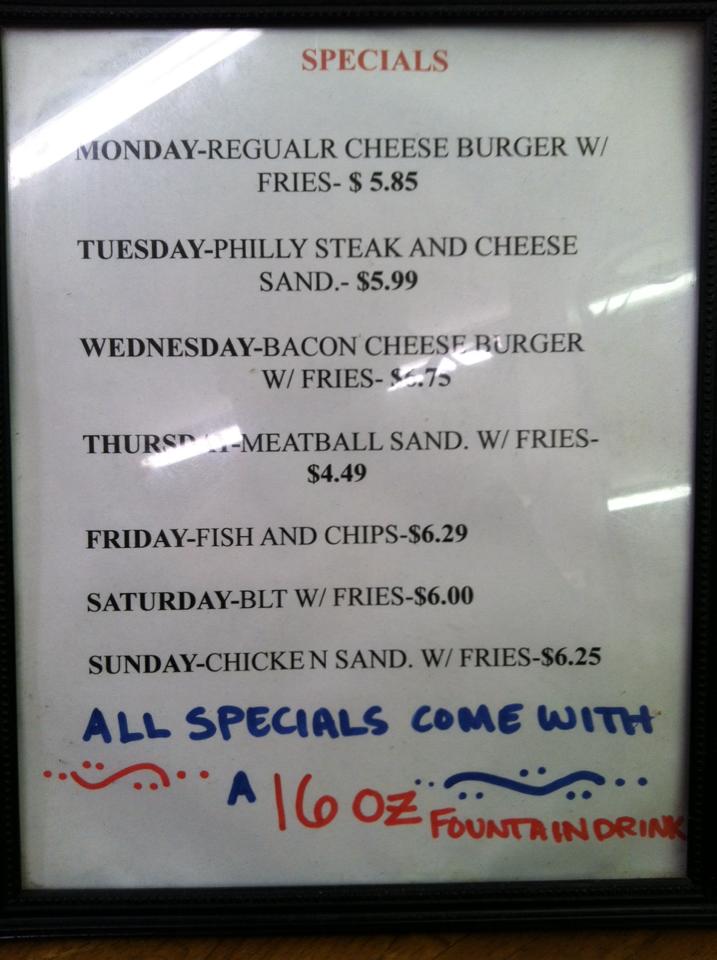 SPECIALS
MONDAY-REGUALR CHEESE BURGER W/
FRIES- $ 5.85
TUESDAY-PHILLY STEAK AND CHEESE
SAND.- $5.99
WEDNESDAY-BACON CHEESE BURGER
W/ FRIES- $6.75
THURSDAY-MEATBALL SAND. W/ FRIES-
$4.49
FRIDAY-FISH AND CHIPS-$6.29
SATURDAY-BLT W/ FRIES-$6.00
SUNDAY-CHICKEN SAND. W/ FRIES-$6.25
ALL SPECIALS COME WITH
A 16 OZ FOUNTAIN DRINK